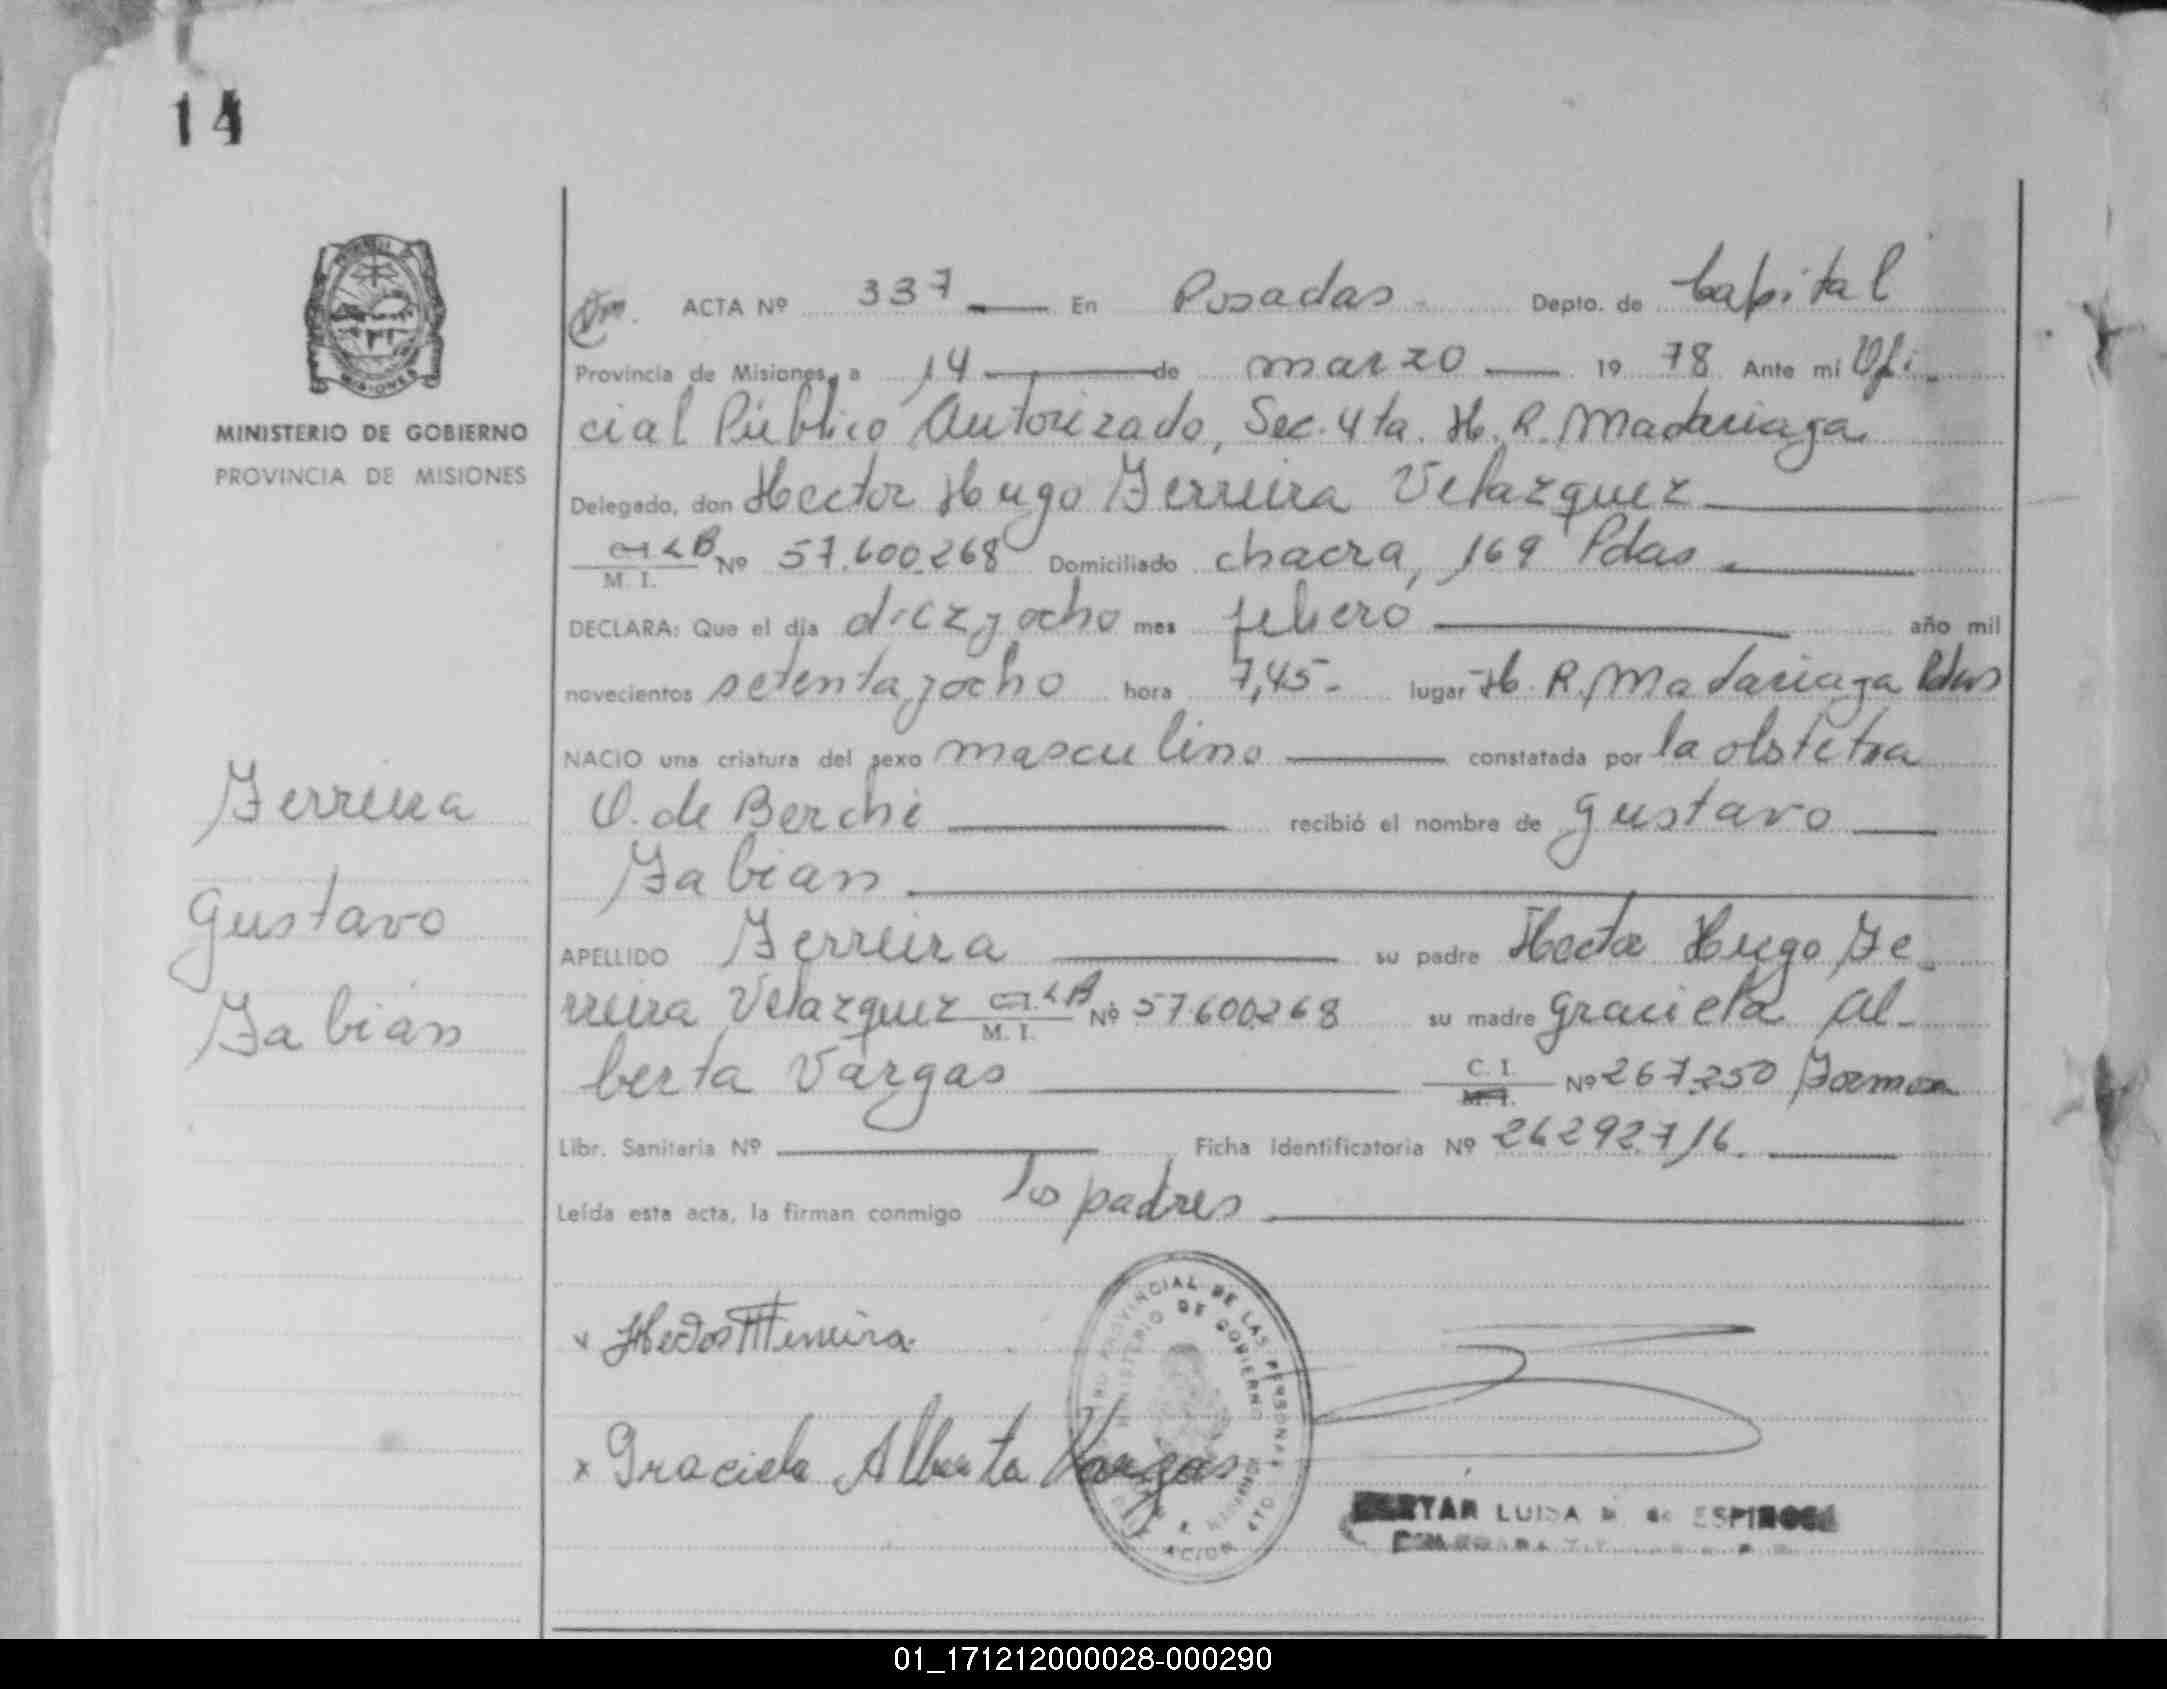 14
MINISTERIO DE GOBIERNO
PROVINCIA DE MISIONES
Ferreira
Gustavo
Fabian
ACTA Nº 337 En Posadas Depto. de Capital
Provincia de Misiones, a 14 de marzo 1978 Ante mi Ofi-
cial Público Autorizado, Sec. 4ta. H. R. Madariaga
Delegado, don Hector Hugo Ferreira Velazquez
M. I. Nº 57.600.268 Domiciliado chacra, 169 Pdas
DECLARA: Que el día diezyocho mes febero año mil
novecientos setentayocho hora 7,45- lugar H. R. Madariaga Pdas
NACIO una criatura del sexo masculino constatada por la obstetra
O. de Berchi recibió el nombre de Gustavo
Fabian
APELLIDO Ferreira su padre Hector Hugo Fe-
rreira Velazquez M. I. Nº 57.600.268 su madre Graciela Al-
berta Vargas C. I. M. I. Nº 267.250 Formosa
Libr. Sanitaria Nº Ficha Identificatoria Nº 262927/6.
Leída esta acta, la firman conmigo los padres
x Graciela Alberta Vargas
PROVINCIAL DE LAS PERSONAS
MINISTERIO DE GOBIERNO
LUISA ESPINOSA
01_171212000028-000290